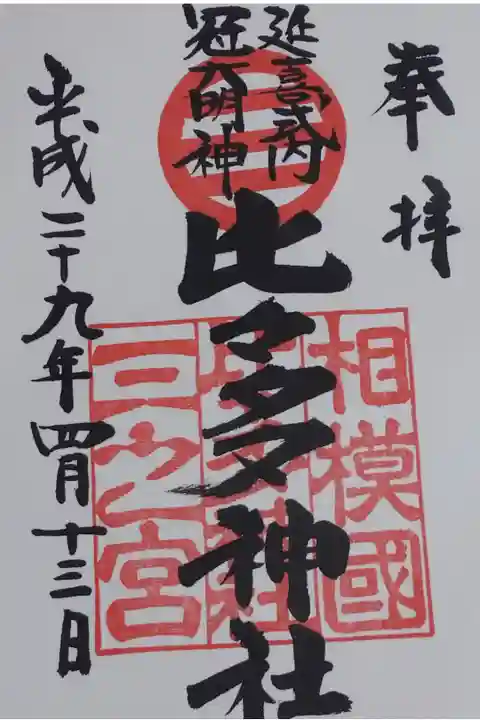 奉拝
延喜式内
冠大明神
比々多神社
平成二十九年四月十三日
相模國
比々多神社
三之宮